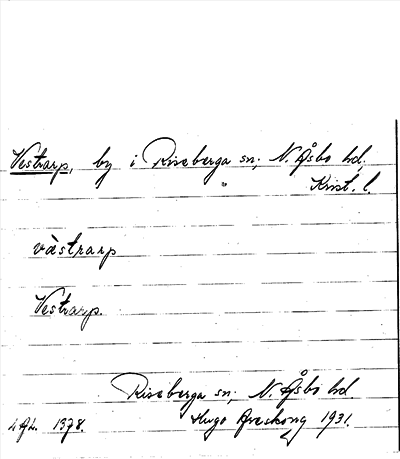 Vestrarp, by i Riseberga sn; N. Åsbo hd,
Krist. l.
västrarp
Vestrarp.
Riseberga sn; N. Åsbo hd.
1978. Hugo Areskoug 1931.